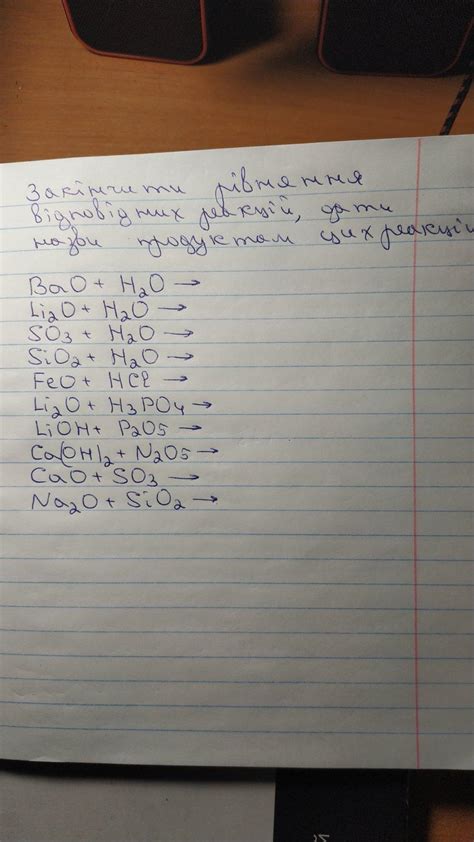 Закінчити рівняння
відповідних реакцій, дати
назви продуктам цих реакцій
BaO + H₂O →
Li₂O + H₂O →
SO₃ + H₂O →
SiO₂ + H₂O →
FeO + HCl →
Li₂O + H₃PO₄ →
LiOH + P₂O₅ →
Ca(OH)₂ + N₂O₅ →
CaO + SO₃ →
Na₂O + SiO₂ →